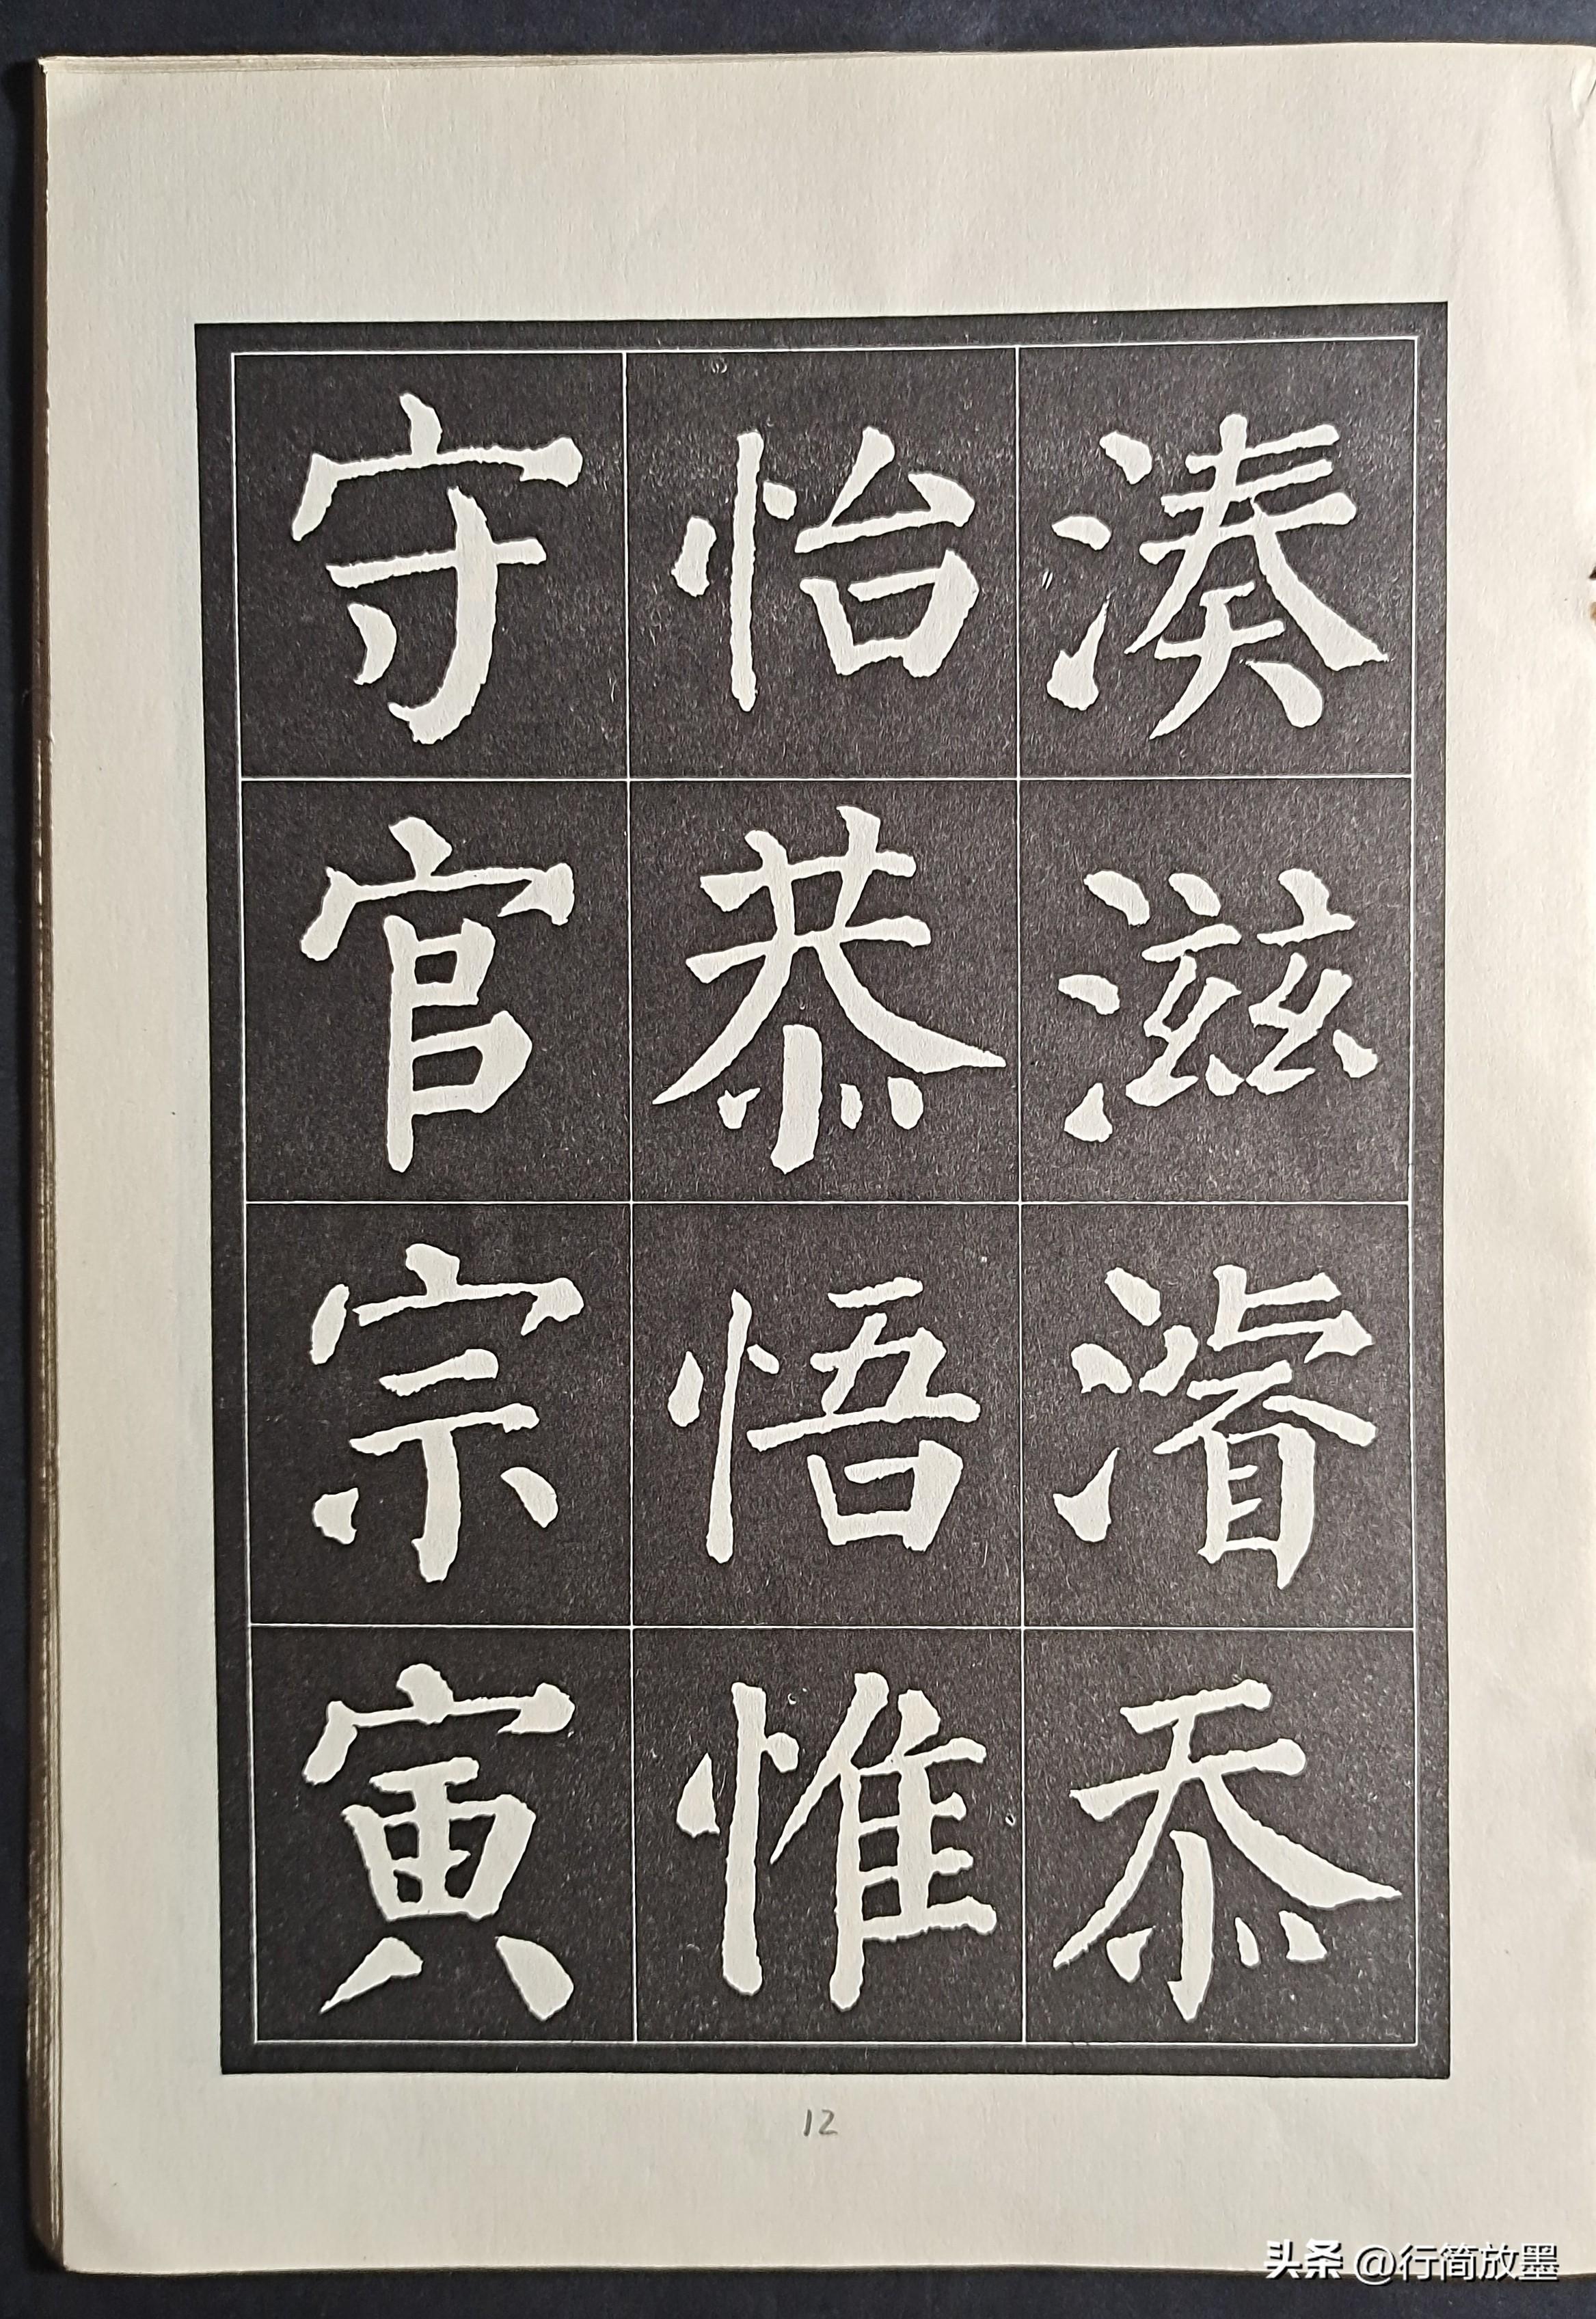 湊滋濬忝
怡恭悟惟
守官宗寅
12
头条 @行简放墨